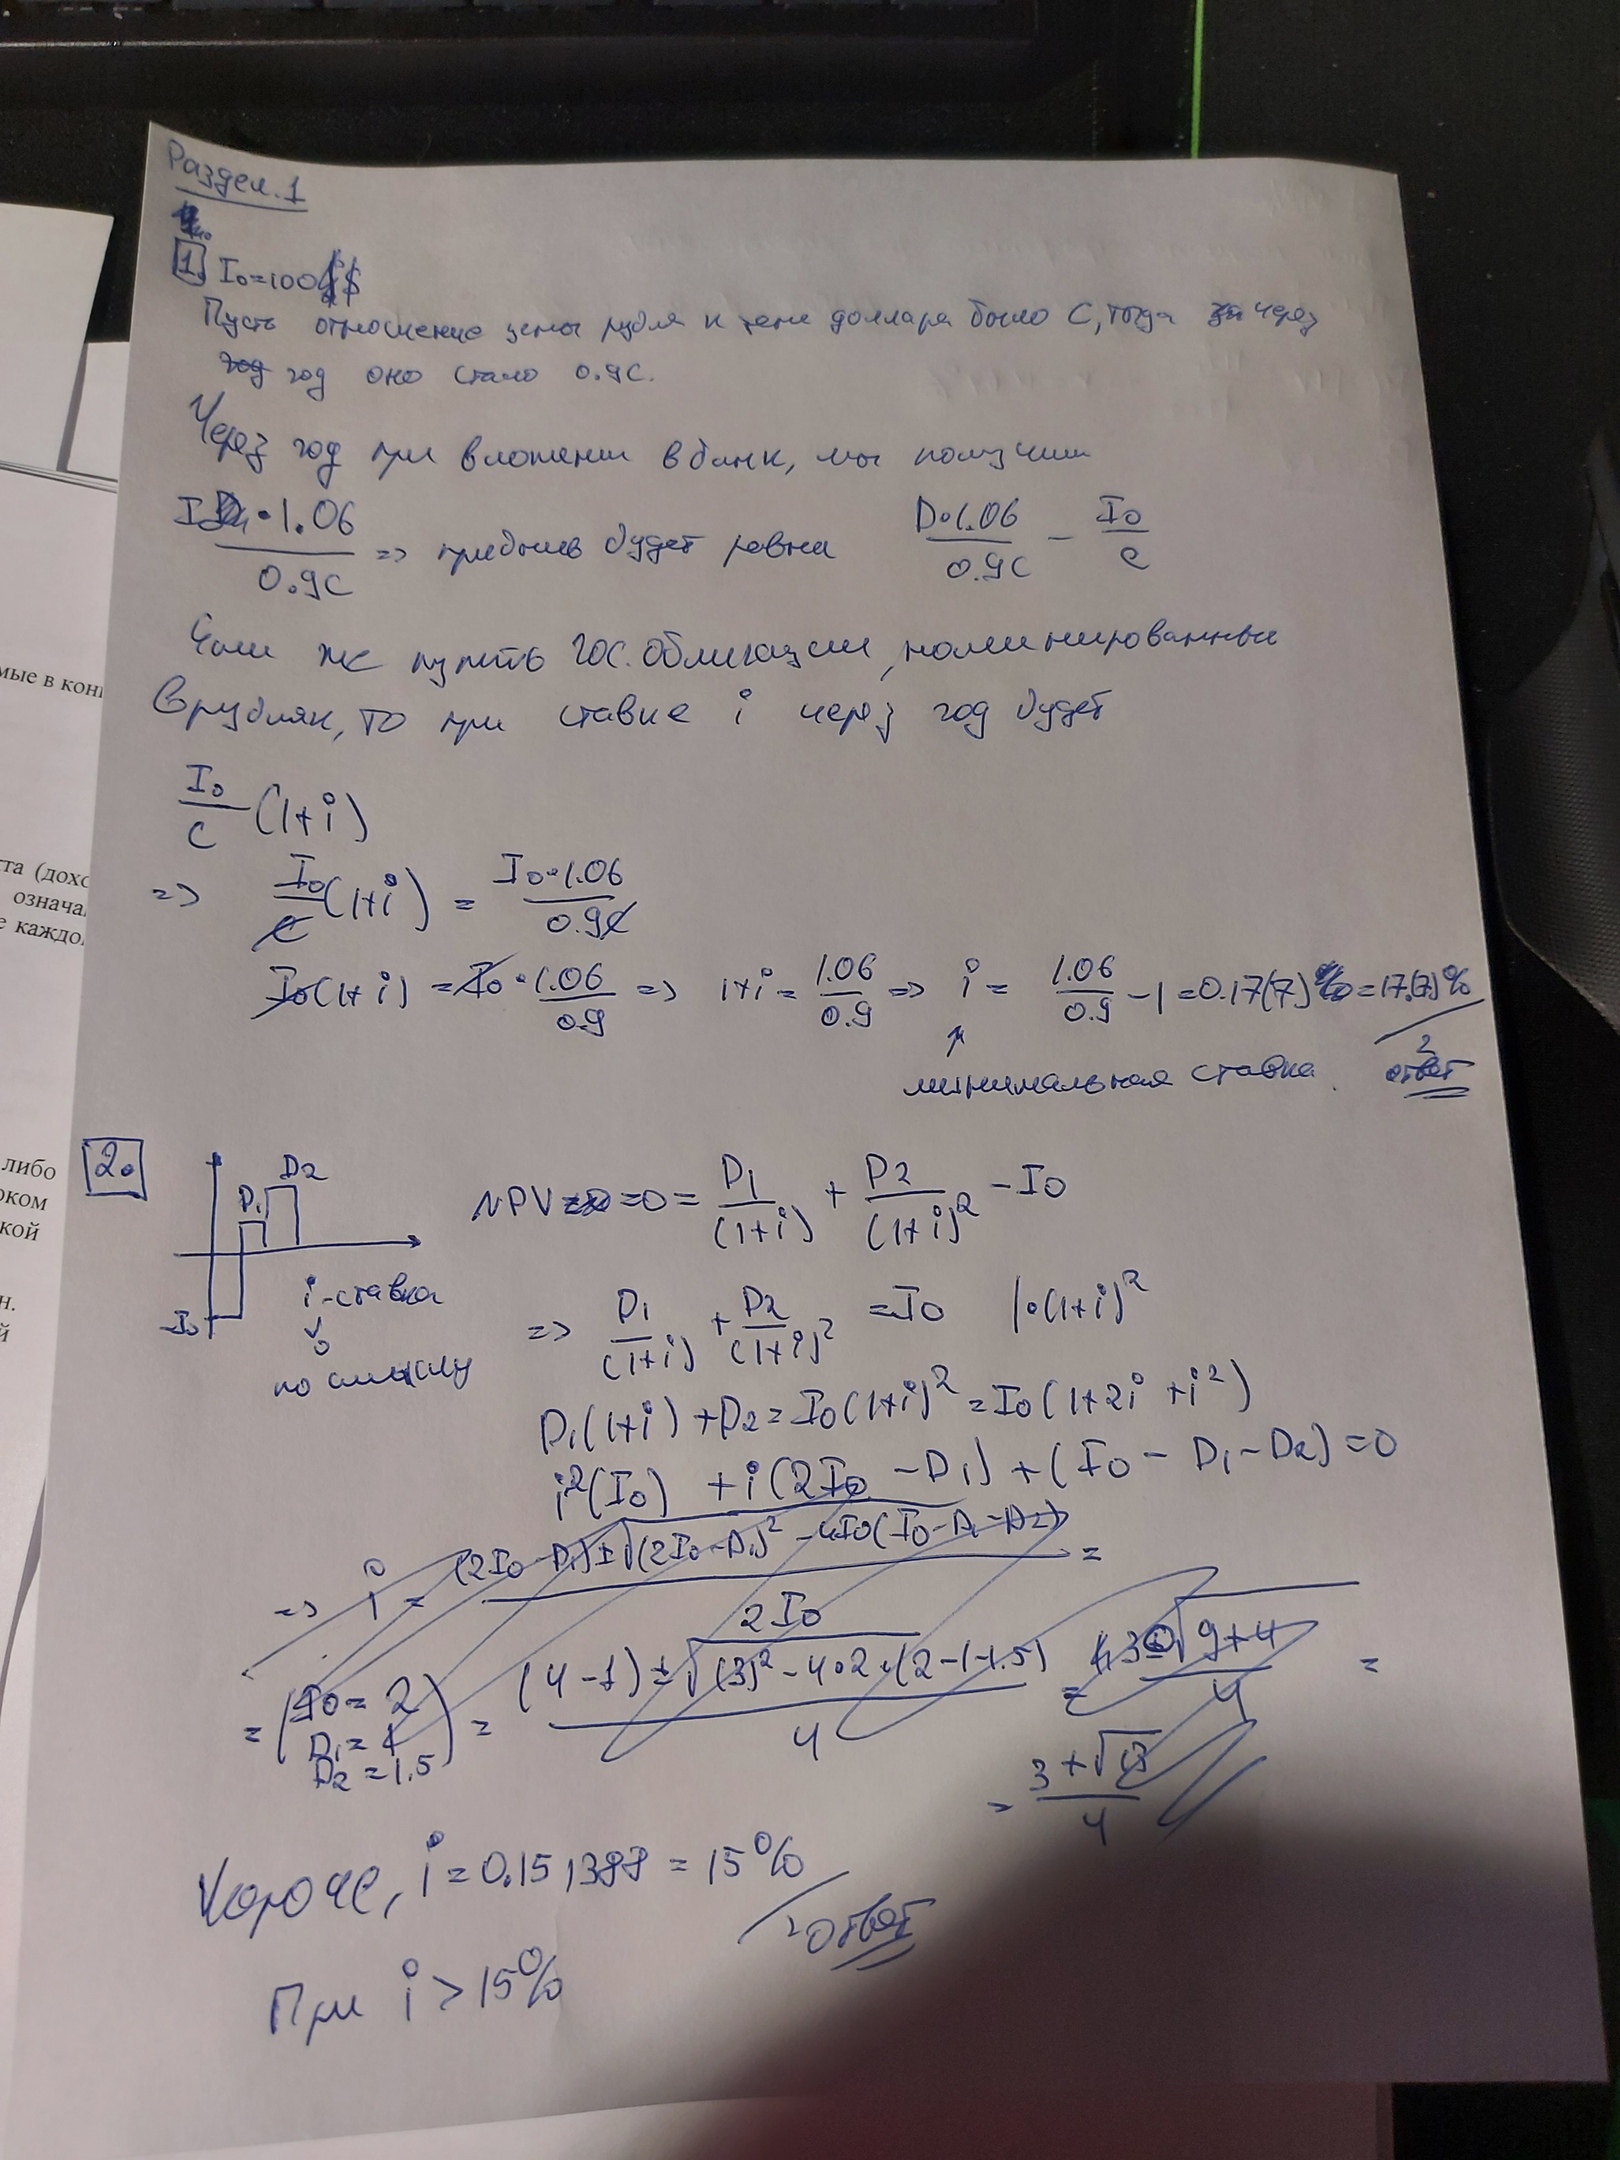 Раздел.1
1. I₀=100$
Пусть отношение цены рубля к цене доллара было C, тогда через
год оно стало 0.9C.
Через год при вложении в банк, мы получим
I₀·1.06 / 0.9C => прибыль будет равна D·1.06 / 0.9C − I₀/C
Если же купить гос. облигации, номинированные
в рублях, то при ставке i через год будет
I₀/C (1+i)
=> I₀/C (1+i) = I₀·1.06 / 0.9C
I₀(1+i) = I₀·1.06/0.9 => 1+i = 1.06/0.9 => i = 1.06/0.9 −1 = 0.17(7) = 17.(7)%
минимальная ставка. ответ
2.
D₁ D₂
-I₀
i-ставка
по смыслу
NPV = 0 = D₁/(1+i) + D₂/(1+i)² − I₀
=> D₁/(1+i) + D₂/(1+i)² = I₀ |·(1+i)²
D₁(1+i) + D₂ = I₀(1+i)² = I₀(1+2i+i²)
i²(I₀) + i(2I₀ − D₁) + (I₀ − D₁ − D₂) = 0
=> i = (2I₀−D₁)±√((2I₀−D₁)² −4I₀(I₀−D₁−D₂)) / 2I₀ =
= (I₀=2 D₁=1 D₂=1.5) = (4−1)±√((3)²−4·2·(2−1−1.5)) / 4 = 3±√9+4 / 4 =
= 3+√13 / 4
Короче, i = 0.151388 = 15%
ответ
При i > 15%
мые в кон
та (дохо
означа
е каждо
либо
оком
кой
н.
й